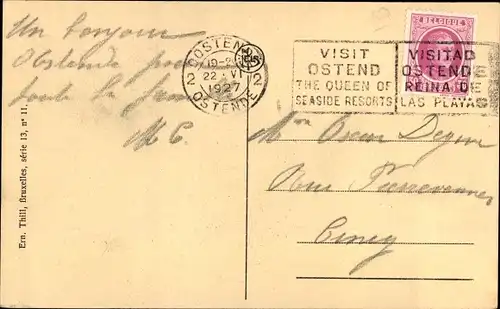 Un bonjour
Ostende pour
toute la
M C.
OOSTENDE
22 VI
2 2
1927
OSTENDE
VISIT
OSTEND
THE QUEEN OF
SEASIDE RESORTS
VISITAD
OSTENDE
REINA DE
LAS PLAYAS
BELGIQUE
Oscar
Rue
Ciney
Ern. Thill, Bruxelles, série 13, n° 11.